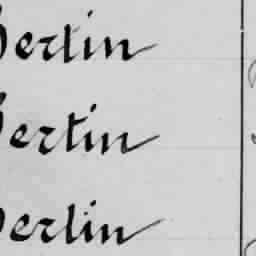 Bertin
Bertin
Bertin